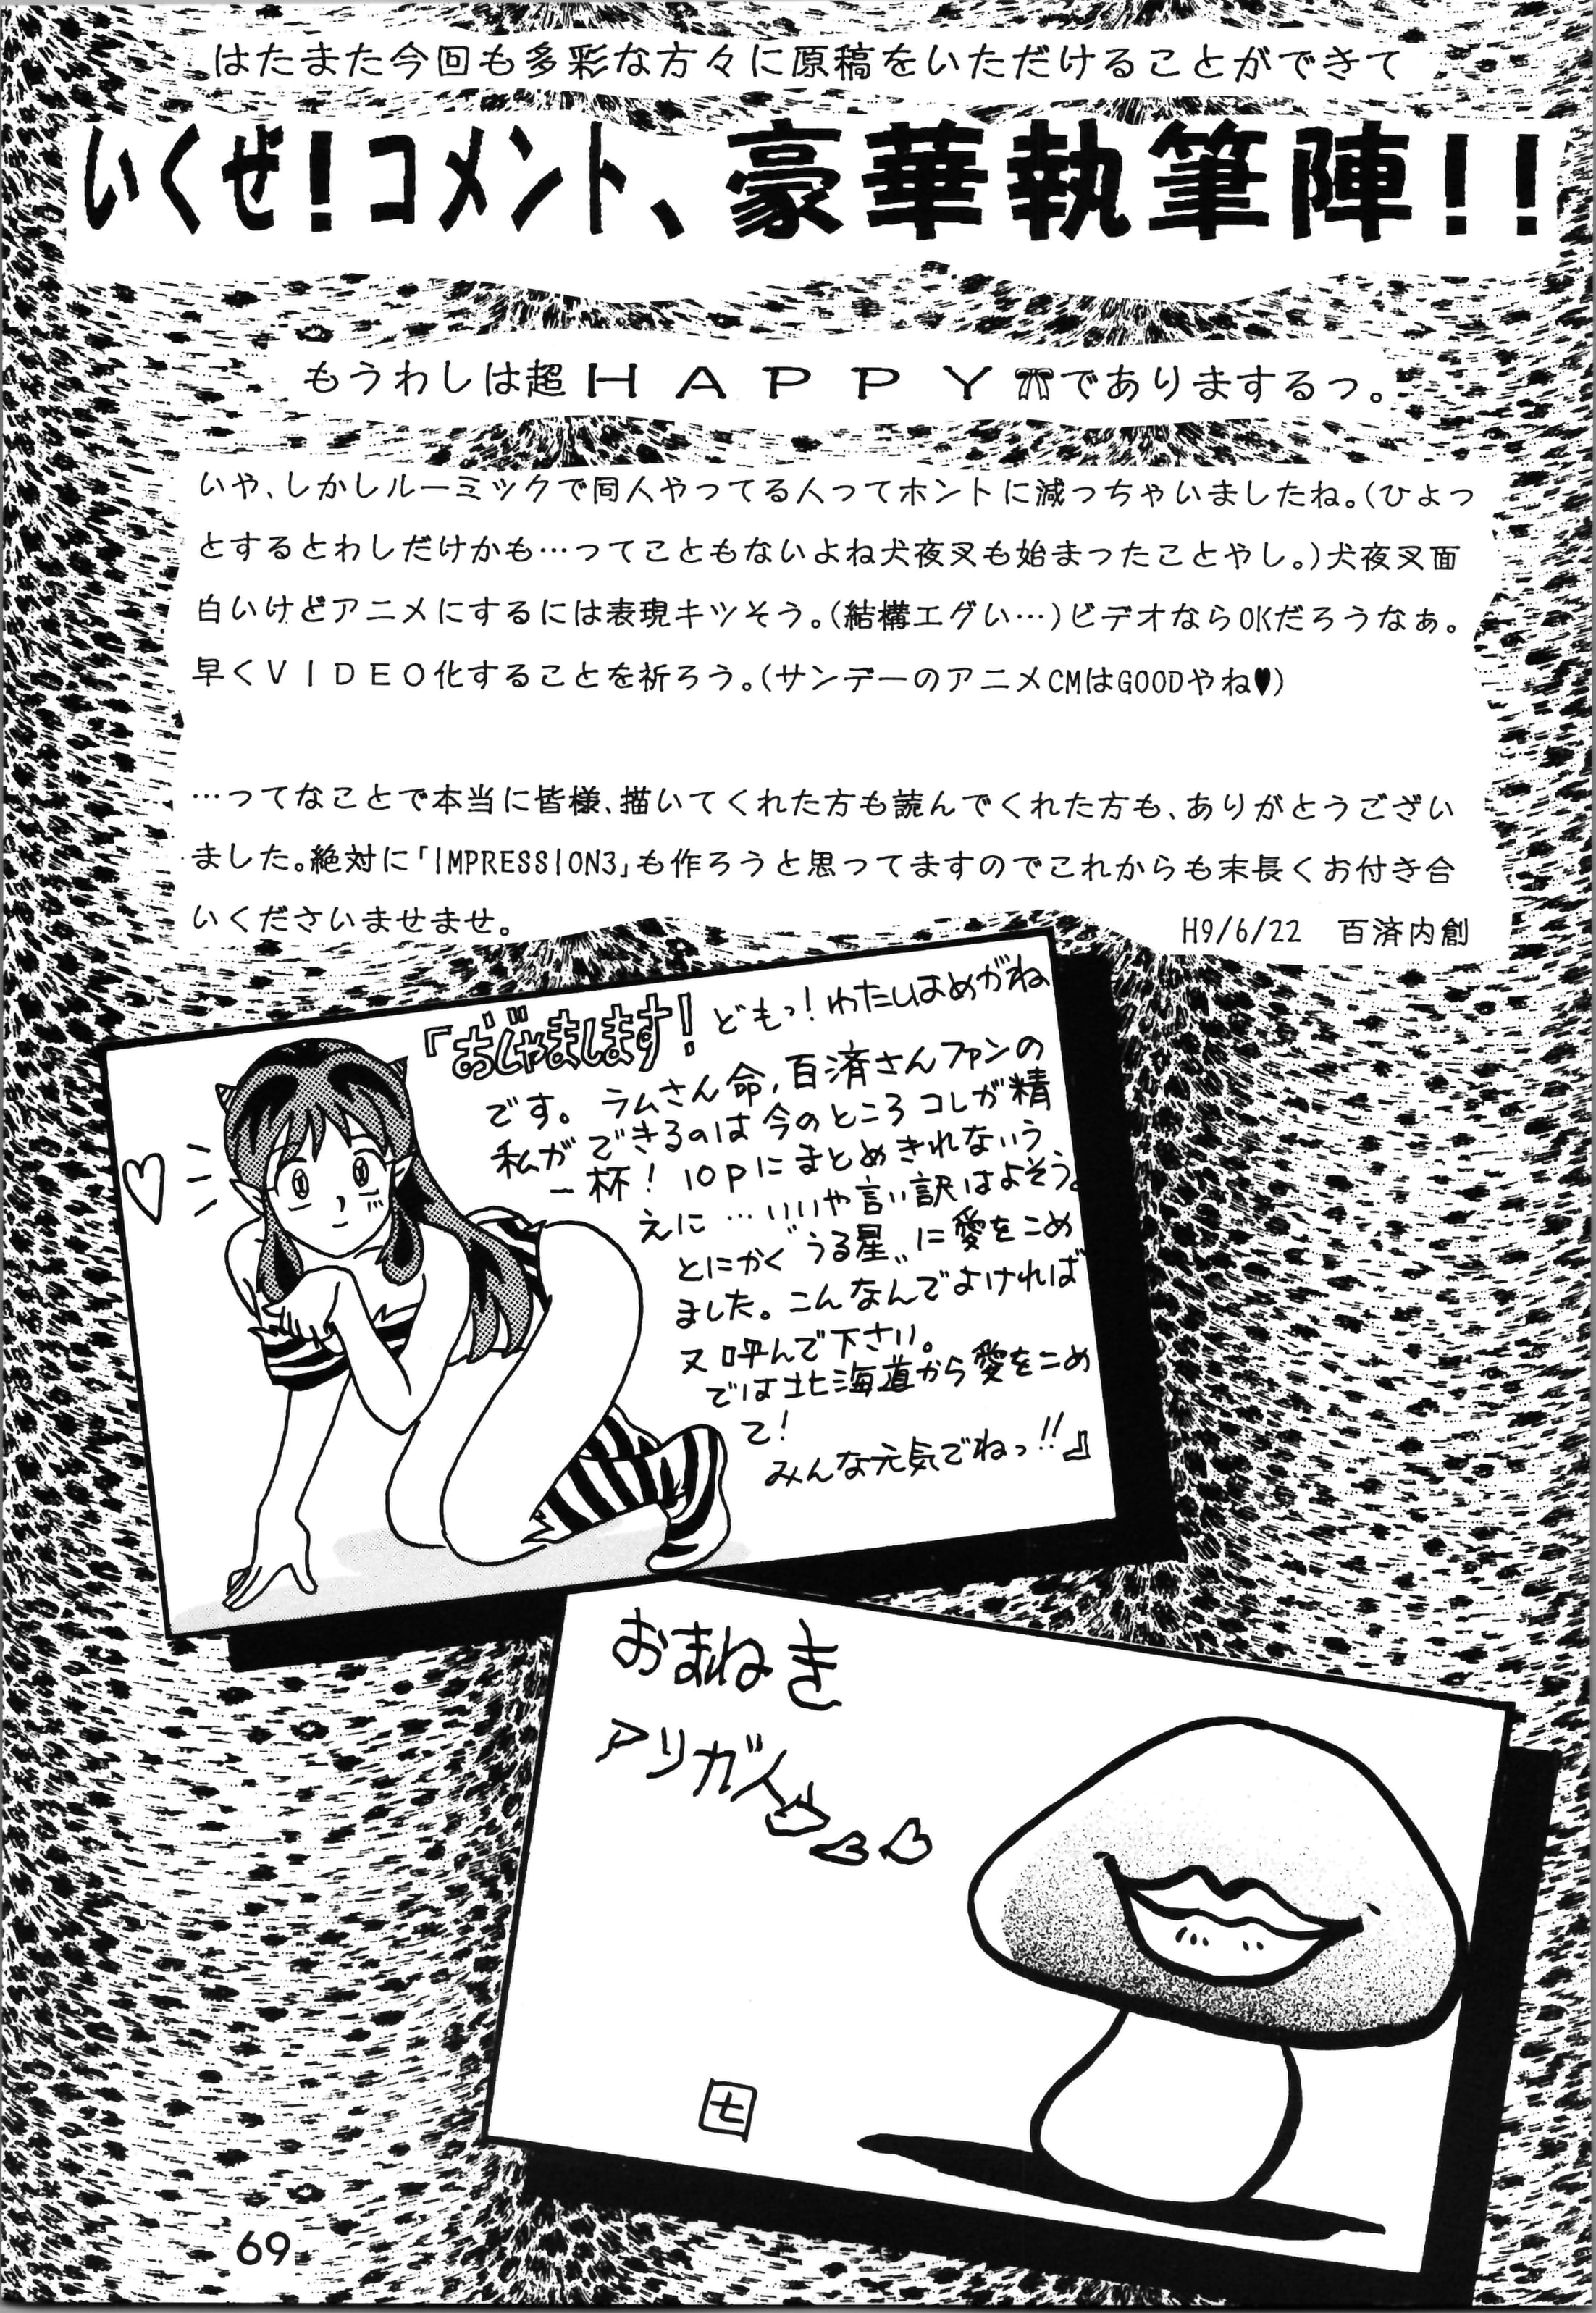 はたまた今回も多彩な方々に原稿をいただけることができて
いくぜ!コメント、豪華執筆陣!!
もうわしは超HAPPYでありまするっ。
いや、しかしルーミックで同人やってる人ってホントに減っちゃいましたね。(ひょっ
とするとわしだけかも…ってこともないよね犬夜叉も始まったことやし。)犬夜叉面
白いけどアニメにするには表現キツそう。(結構エグい…)ビデオならOKだろうなぁ。
早くVIDEO化することを祈ろう。(サンデーのアニメCMはGOODやね♥)
…ってなことで本当に皆様、描いてくれた方も読んでくれた方も、ありがとうござい
ました。絶対に「IMPRESSION3」も作ろうと思ってますのでこれからも末長くお付き合
いくださいませませ。
H9/6/22 百済内創
「おじゃまします! どもっ! わたしはめがね
です。ラムさん命,百済さんファンの
私ができるのは今のところコレが精
一杯! 10Pにまとめきれないう
えに…いいや言い訳はよそう。
とにかく“うる星”に愛をこめ
ました。こんなんでよければ
又呼んで下さい。
では北海道から愛をこめ
て!
みんな元気でねっ!!』
おまねき
アリガト
七
69